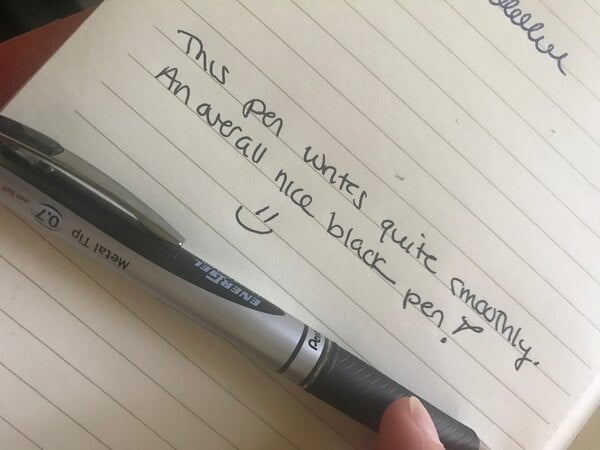 This pen writes quite smoothly.
An overall nice black pen!
0.7
mm ball
Metal Tip
ENERGEL
Pent